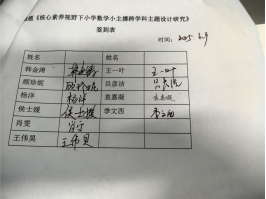 题《核心素养视野下小学数学小主播跨学科主题设计研究》
签到表
时间: 2025 2.9
姓名 姓名
韩金涛 韩金涛 王一叶 王一叶
顾珍妮 顾珍妮 吕彦洁 吕彦洁
杨洋 杨洋 袁嘉薇 袁嘉薇
侯士媛 侯士媛 李文西 李文西
肖雯 肖雯
王伟昊 王伟昊